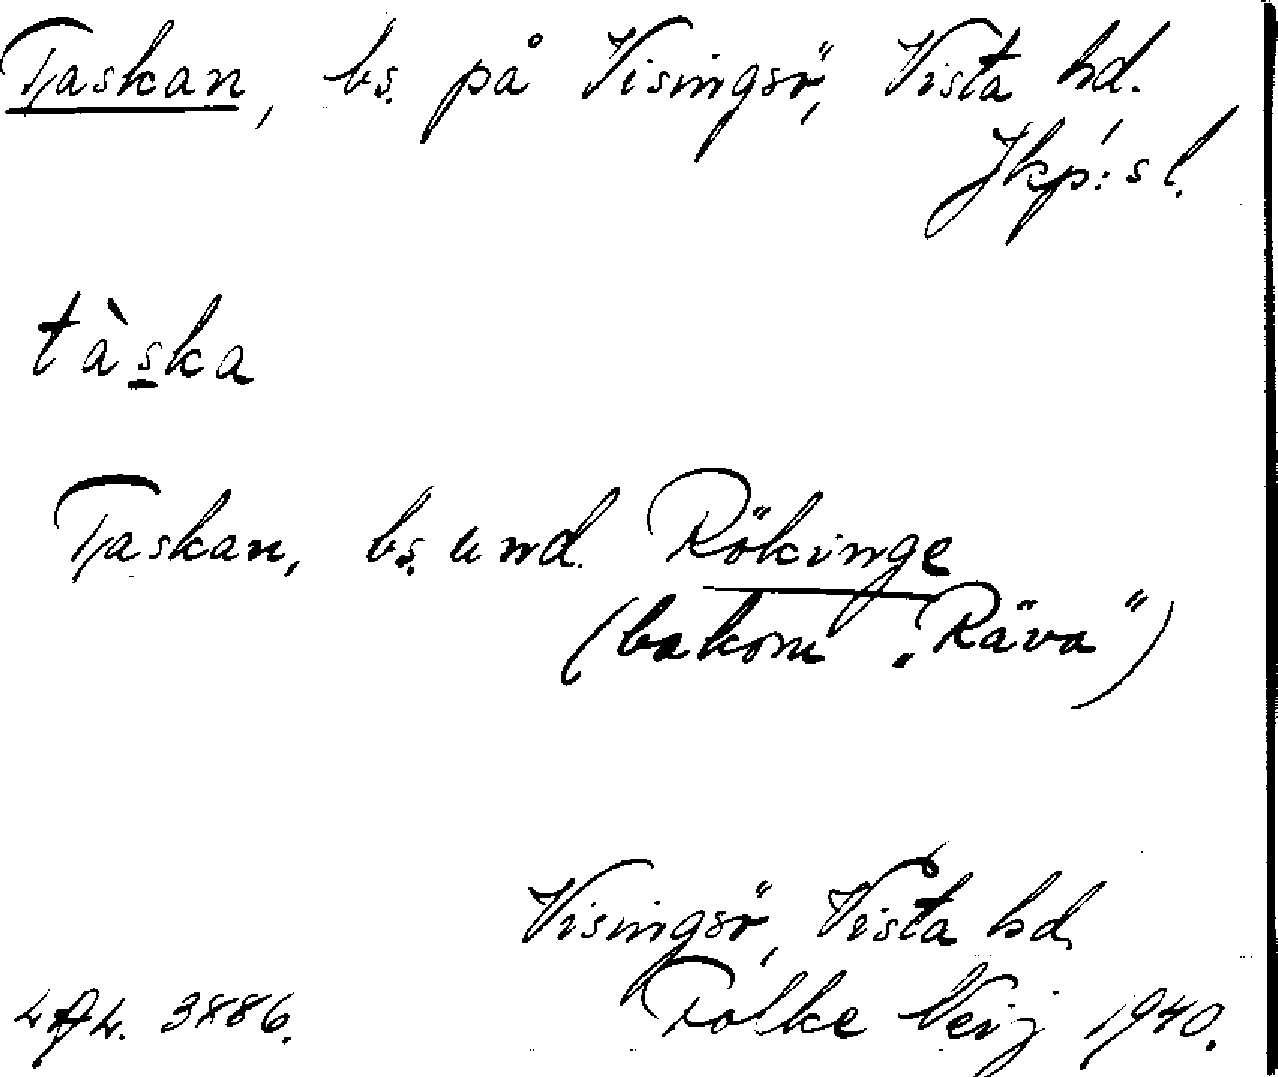 Taskan, bs. på Visingsö, Vista hd.
Jkp:s l.
tàska
Taskan, bs. und. Rökinge
(bakom „Räva“)
Visingsö, Vista hd,
LAL. 3886. Folke Veij 1940.